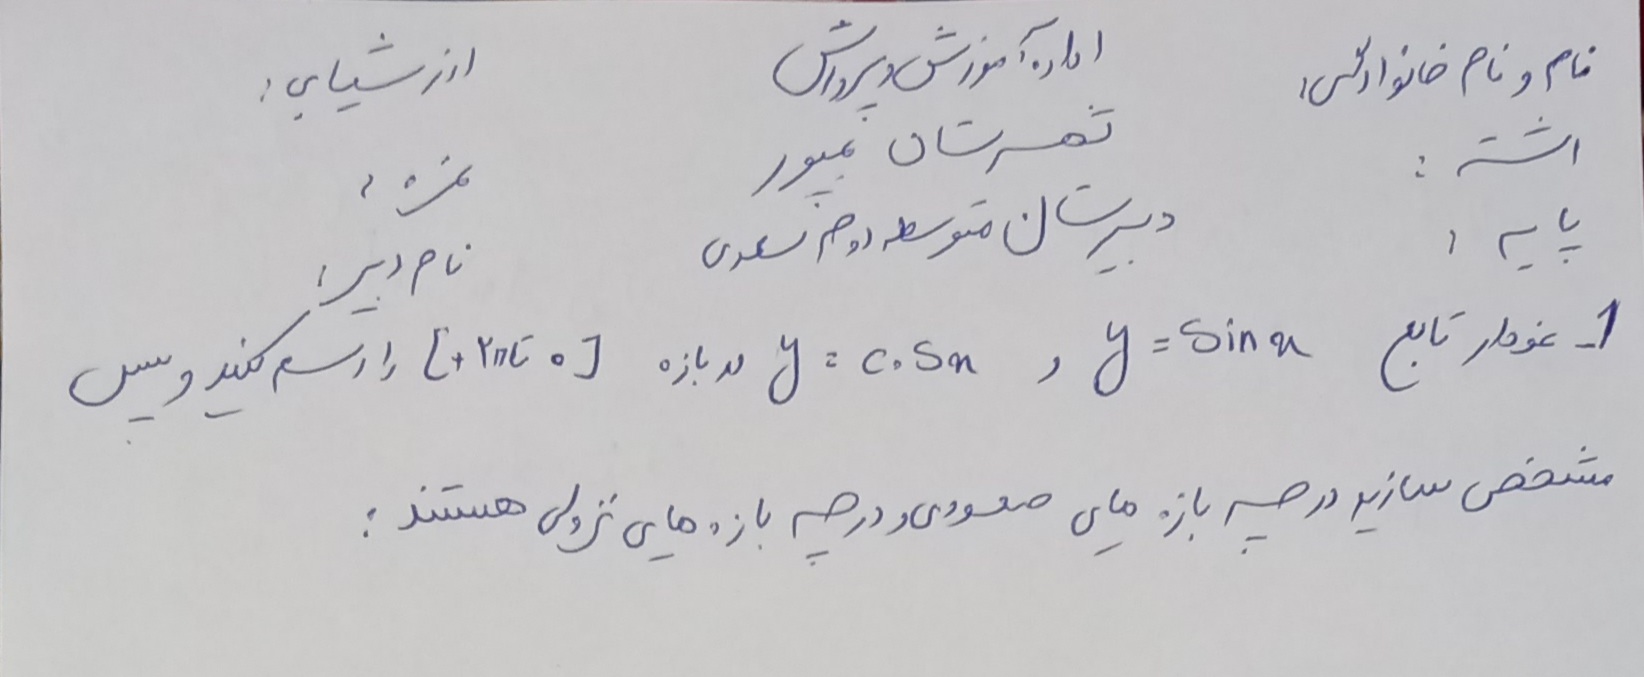 نام و نام خانوادگی: اداره آموزش و پرورش ارزشیابی:
رشته: شهرستان بمپور نمره:
پایه: دبیرستان متوسطه دوم سعدی نام دبیر:
1- نمودار تابع y = Sin x و y = Cos x در بازه [0 تا 2π+] را رسم کنید و سپس
مشخص سازید در چه بازه های صعودی و در چه بازه های نزولی هستند: